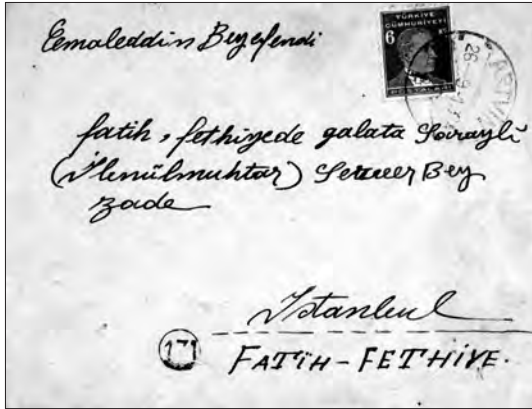 Cemaleddin Beyefendi
TÜRKİYE
CÜMHURİYETİ
6
POSTALARI
ARTVİN
26-9-1
fatih, fethiyede galata Saraylı
(İbnülmuhtar) Server Bey
zade
İstanbul
171
FATİH - FETHİYE.